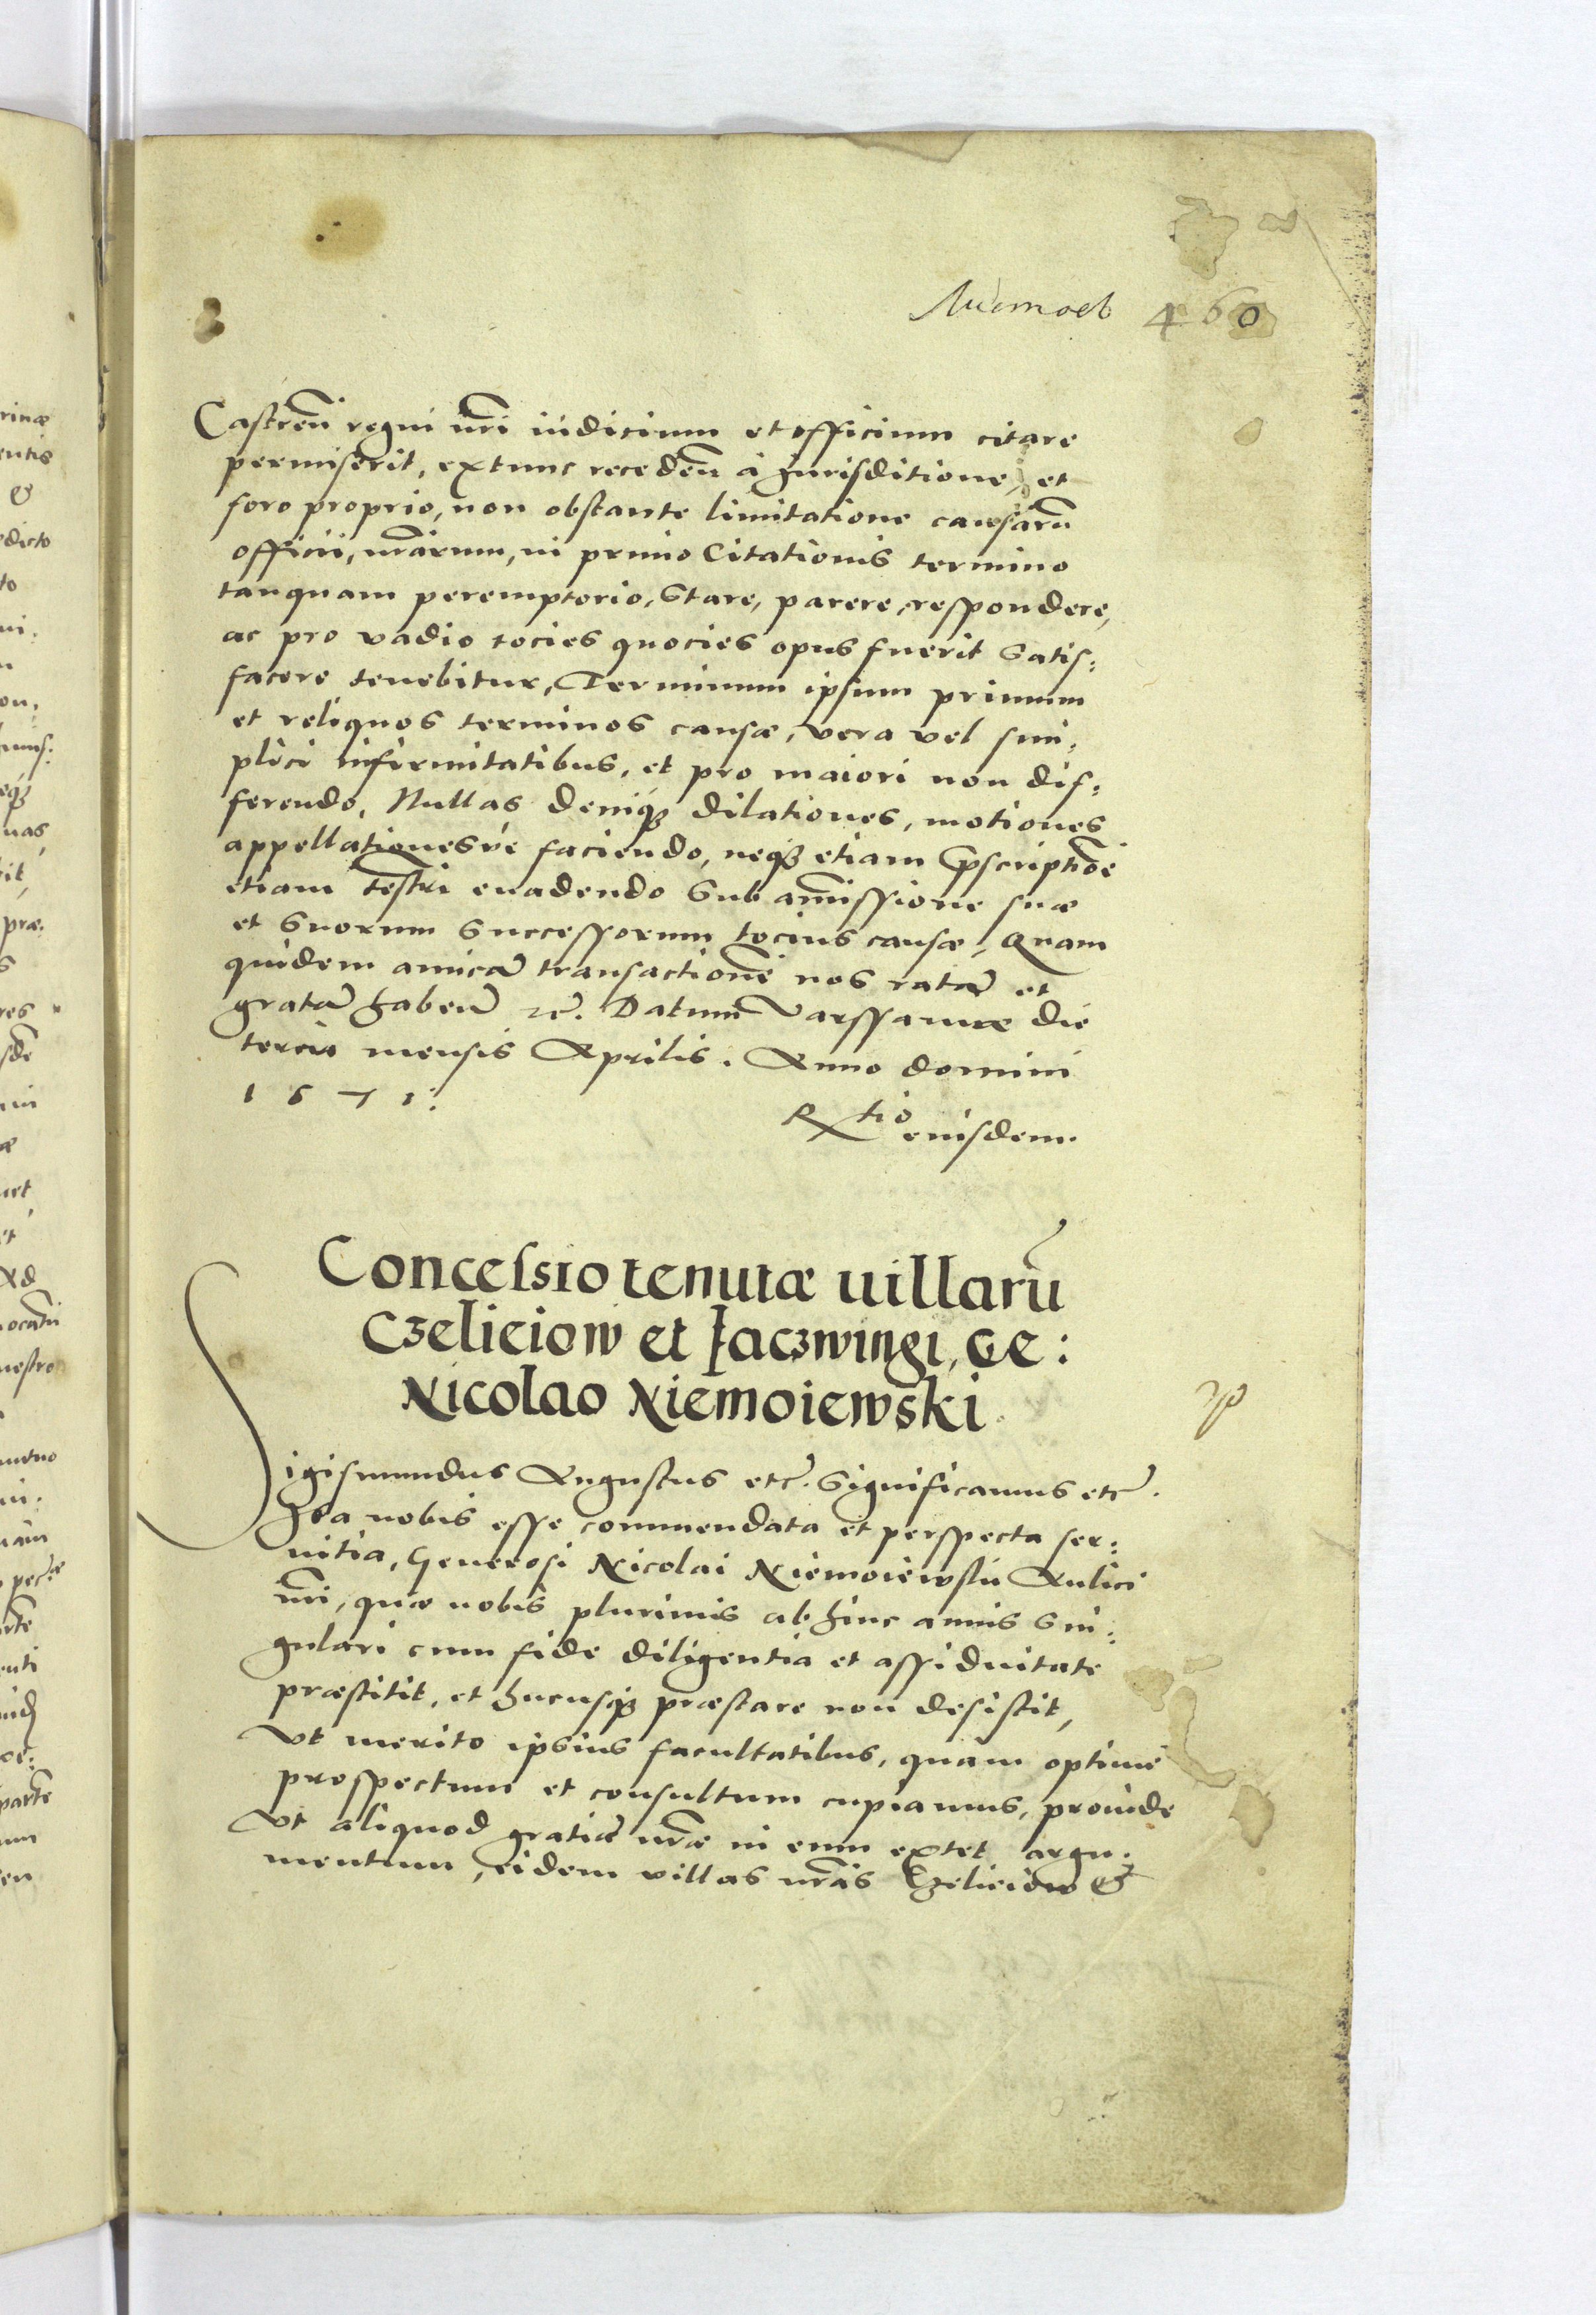 Niemoel 460
Castren̄ regni nr̄i iudicium et officium citare
permiserit, extunc receden̄ à Jurisditione, et
foro proprio, non obstante limitatione causarū
officii, nr̄arum, in primo Citationis termino
tanquam peremptorio, Stare, parere, respondere,
ac pro vadio tocies quocies opus fuerit Satis:
facere tenebitur, Terminum ipsum primum
et reliquos terminos causæ, vera vel sim:
plici infirmitatibus, et pro maiori non dif:
ferendo, Nullas deniqȝ dilationes, motiones
appellationesvè faciendo, neqȝ etiam ꝑscriptiōe
etiam terr̄i euadendo Sub amissione suæ
et Suorum Successorum tocius causæ, Quam
quidem amicā transactionē nos ratā et
gratā haben̄ etc̄. Datum Varssauiæ die
tercia mensis Aprilis. Anno domini
1571:
Rtio eiusdem.
Concessio tenutæ uillarū
Czelieiow et Jaczwingi, Ge:
Nicolao Niemoiewski
Sigismundus Augustus etc̄. Significamus etc̄.
Ita nobis esse commendata et perspecta ser:
uitia, Generosi Nicolai Niemoiewskii Aulici
nr̄i, quæ nobis plurimis ab hinc annis Sin:
gulari cum fide diligentia et assiduitate
præstitit, et hucusqȝ præstare non desistit,
Vt merito ipsius facultatibus, quàm optimè
prospectum et consultum cupiamus, proinde
Vt aliquod gratiæ nr̄æ in eum extet argu:
mentum, eidem villas nr̄as Czelieiow &